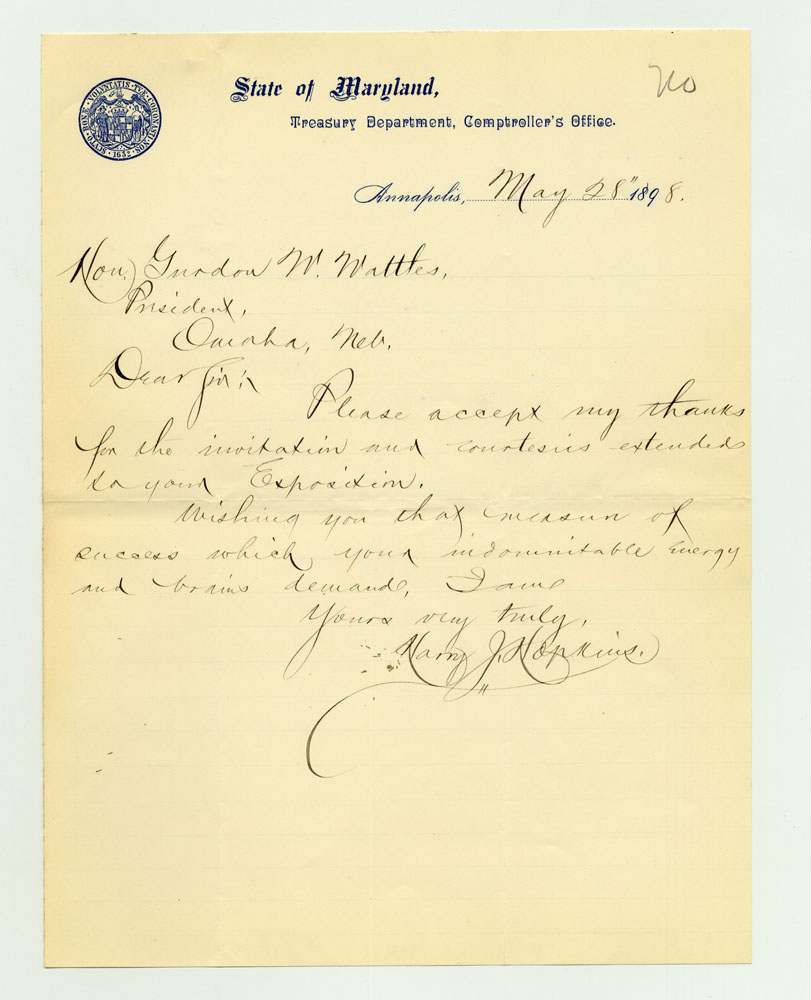 no
State of Maryland,
Treasury Department, Comptroller's Office.
SCVTO · BONÆ · VOLVNTATIS · TVÆ · CORONASTI · NOS
· 1632 ·
Annapolis, May 28" 1898.
Hon. Gurdon W. Wattles,
President,
Omaha, Neb.
Dear Sir:
Please accept my thanks
for the invitation and courtesies extended
to your Exposition.
Wishing you that measure of
success which your indominitable energy
and brains demand, I am
Yours very truly,
Harry J. Hopkins.